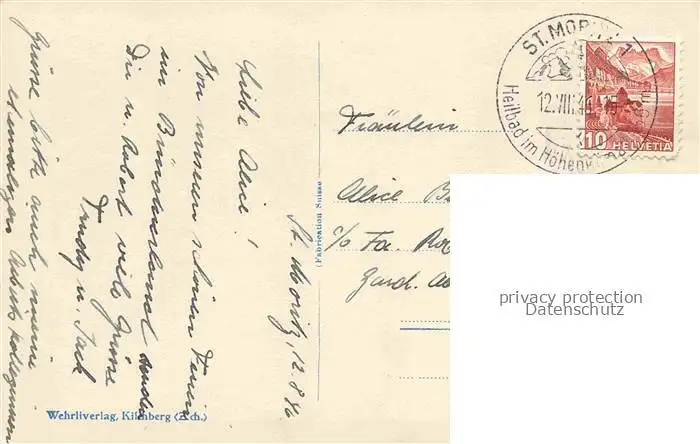 St. Moritz, 12.8.46
Liebe Alice!
Von unseren schönen Ferien
im Bündnerland senden
Dir u. Robert viele Grüsse
Trudy u. Jack
Grüsse bitte auch meine
ehemaligen Arbeitskolleginnen
Wehrliverlag, Kilchberg (Zch.)
(Fabrication Suisse)
Fräulein
Alice B
c/o Fa. Ro
Gard.
ST. MORITZ 1
12.VIII.46
Heilbad im Höhenklima
10
HELVETIA
privacy protection
Datenschutz